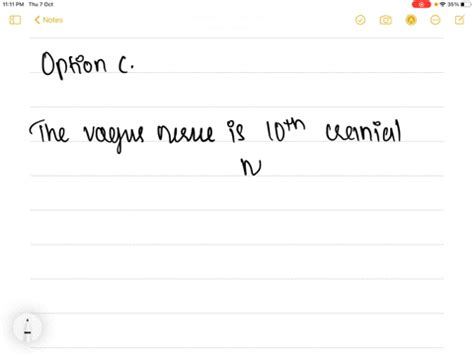 11:11 PM Thu 7 Oct
35%
Notes
Option C.
The vagus nerve is 10th cranial
N